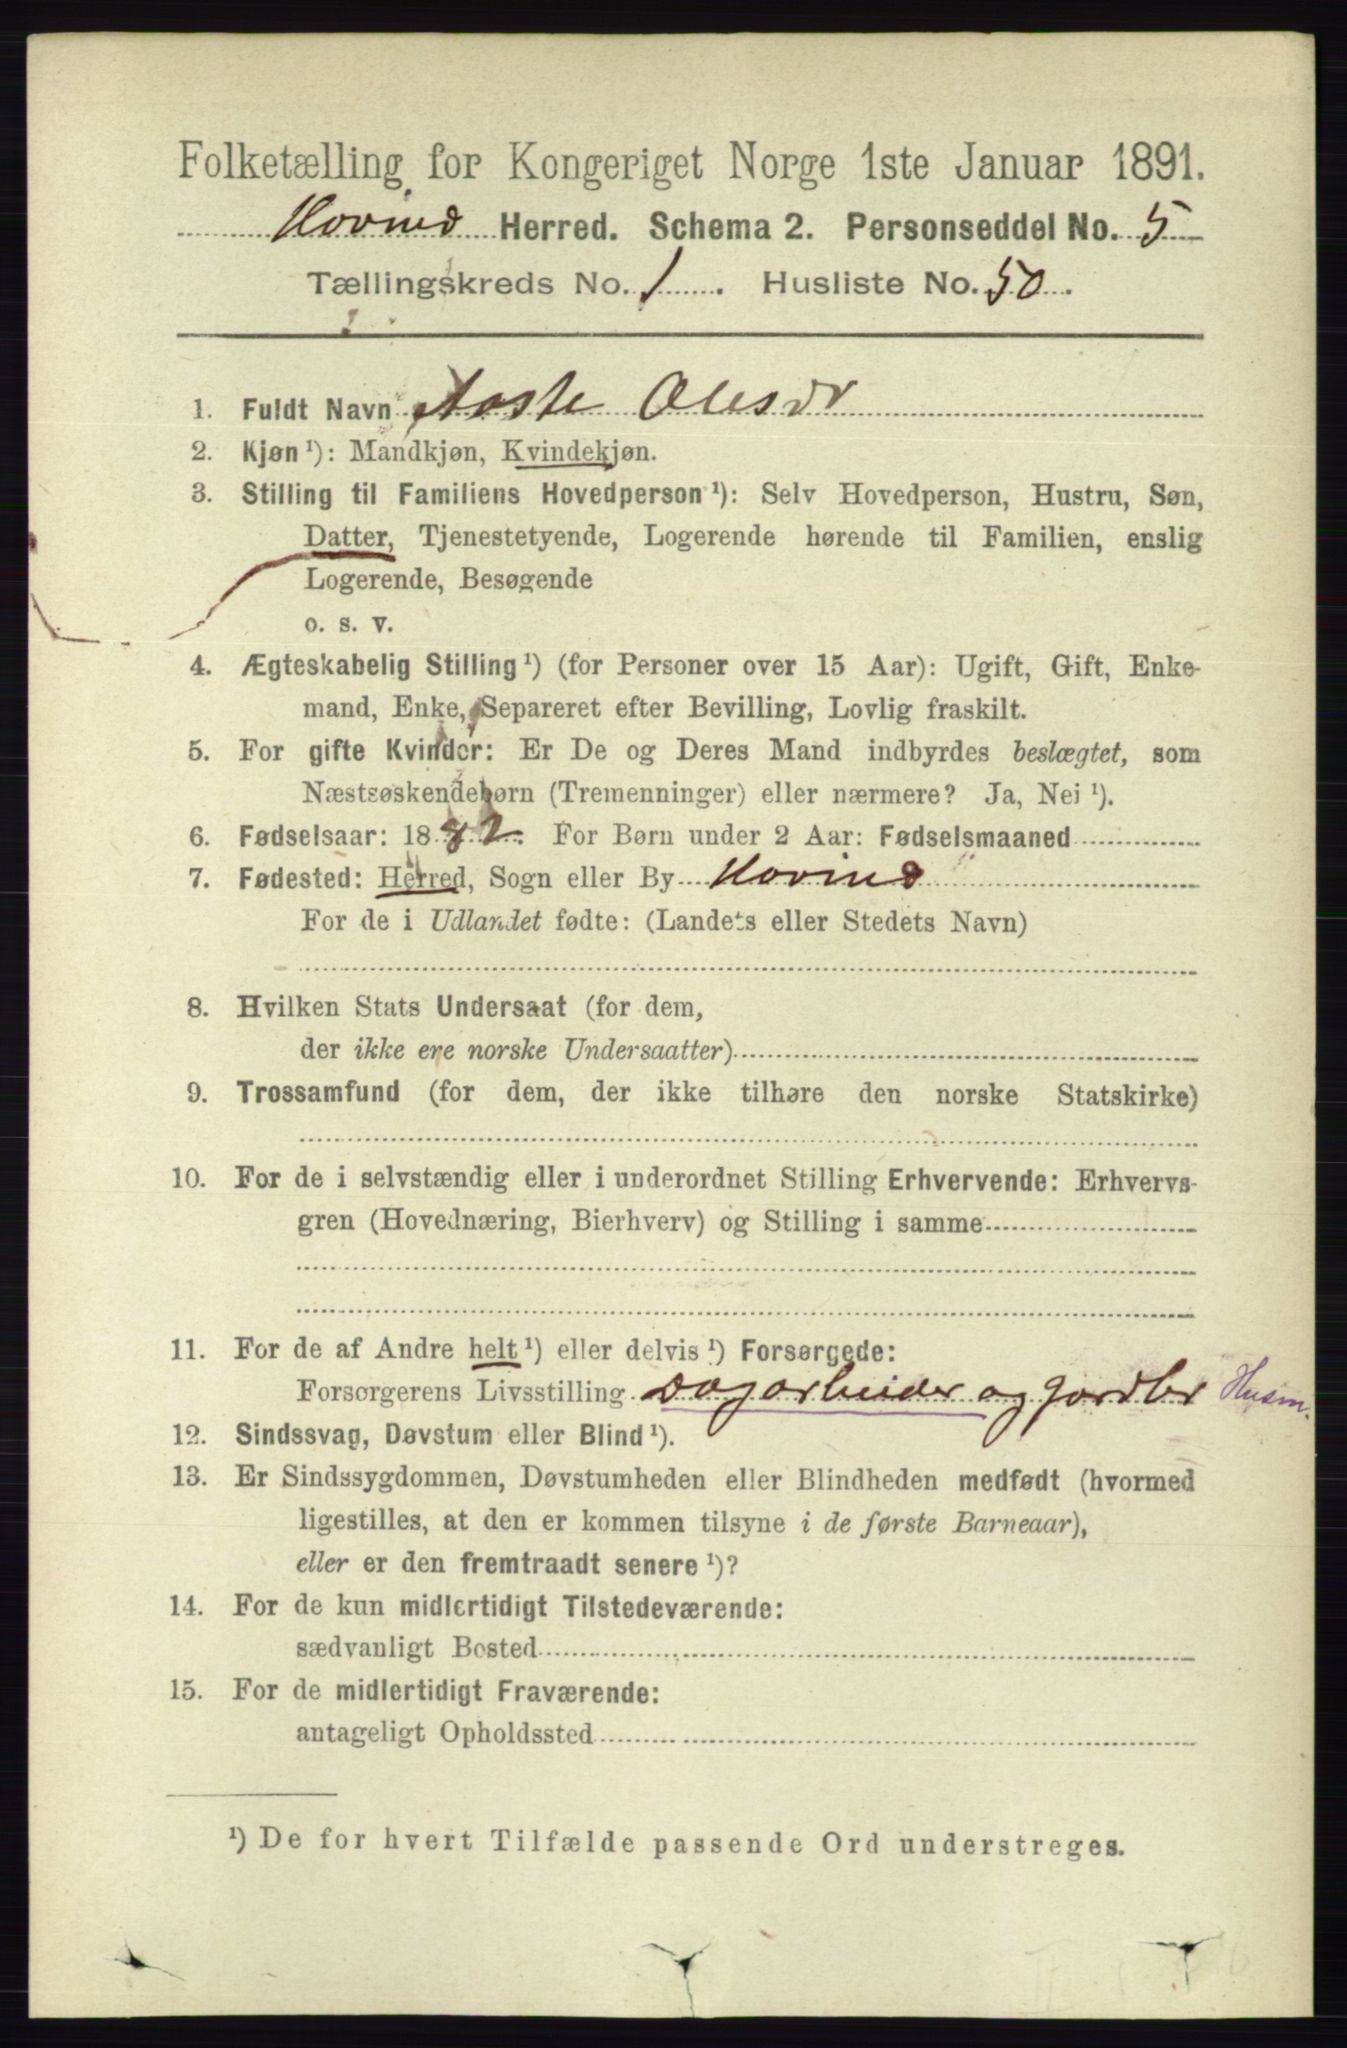 Folketælling for Kongeriget Norge 1ste Januar 1891.
Hovind Herred. Schema 2. Personseddel No. 5
Tællingskreds No. 1. Husliste No. 50.
1. Fuldt Navn Aaste Olesdr
2. Kjøn ¹): Mandkjøn, Kvindekjøn.
3. Stilling til Familiens Hovedperson ¹): Selv Hovedperson, Hustru, Søn,
Datter, Tjenestetyende, Logerende hørende til Familien, enslig
Logerende, Besøgende
o. s. v.
4. Ægteskabelig Stilling ¹) (for Personer over 15 Aar): Ugift, Gift, Enke-
mand, Enke, Separeret efter Bevilling, Lovlig fraskilt.
5. For gifte Kvinder: Er De og Deres Mand indbyrdes beslægtet, som
Næstsøskendebørn (Tremenninger) eller nærmere? Ja, Nei ¹).
6. Fødselsaar: 1882. For Børn under 2 Aar: Fødselsmaaned
7. Fødested: Herred, Sogn eller By Hovind
For de i Udlandet fødte: (Landets eller Stedets Navn)
8. Hvilken Stats Undersaat (for dem,
der ikke ere norske Undersaatter)
9. Trossamfund (for dem, der ikke tilhøre den norske Statskirke)
10. For de i selvstændig eller i underordnet Stilling Erhvervende: Erhvervs-
gren (Hovednæring, Bierhverv) og Stilling i samme
11. For de af Andre helt ¹) eller delvis ¹) Forsørgede:
Forsørgerens Livsstilling Dagarbeider og Jordbr Husm.
12. Sindssvag, Døvstum eller Blind ¹).
13. Er Sindssygdommen, Døvstumheden eller Blindheden medfødt (hvormed
ligestilles, at den er kommen tilsyne i de første Barneaar),
eller er den fremtraadt senere ¹)?
14. For de kun midlertidigt Tilstedeværende:
sædvanligt Bosted
15. For de midlertidigt Fraværende:
antageligt Opholdssted
¹) De for hvert Tilfælde passende Ord understreges.